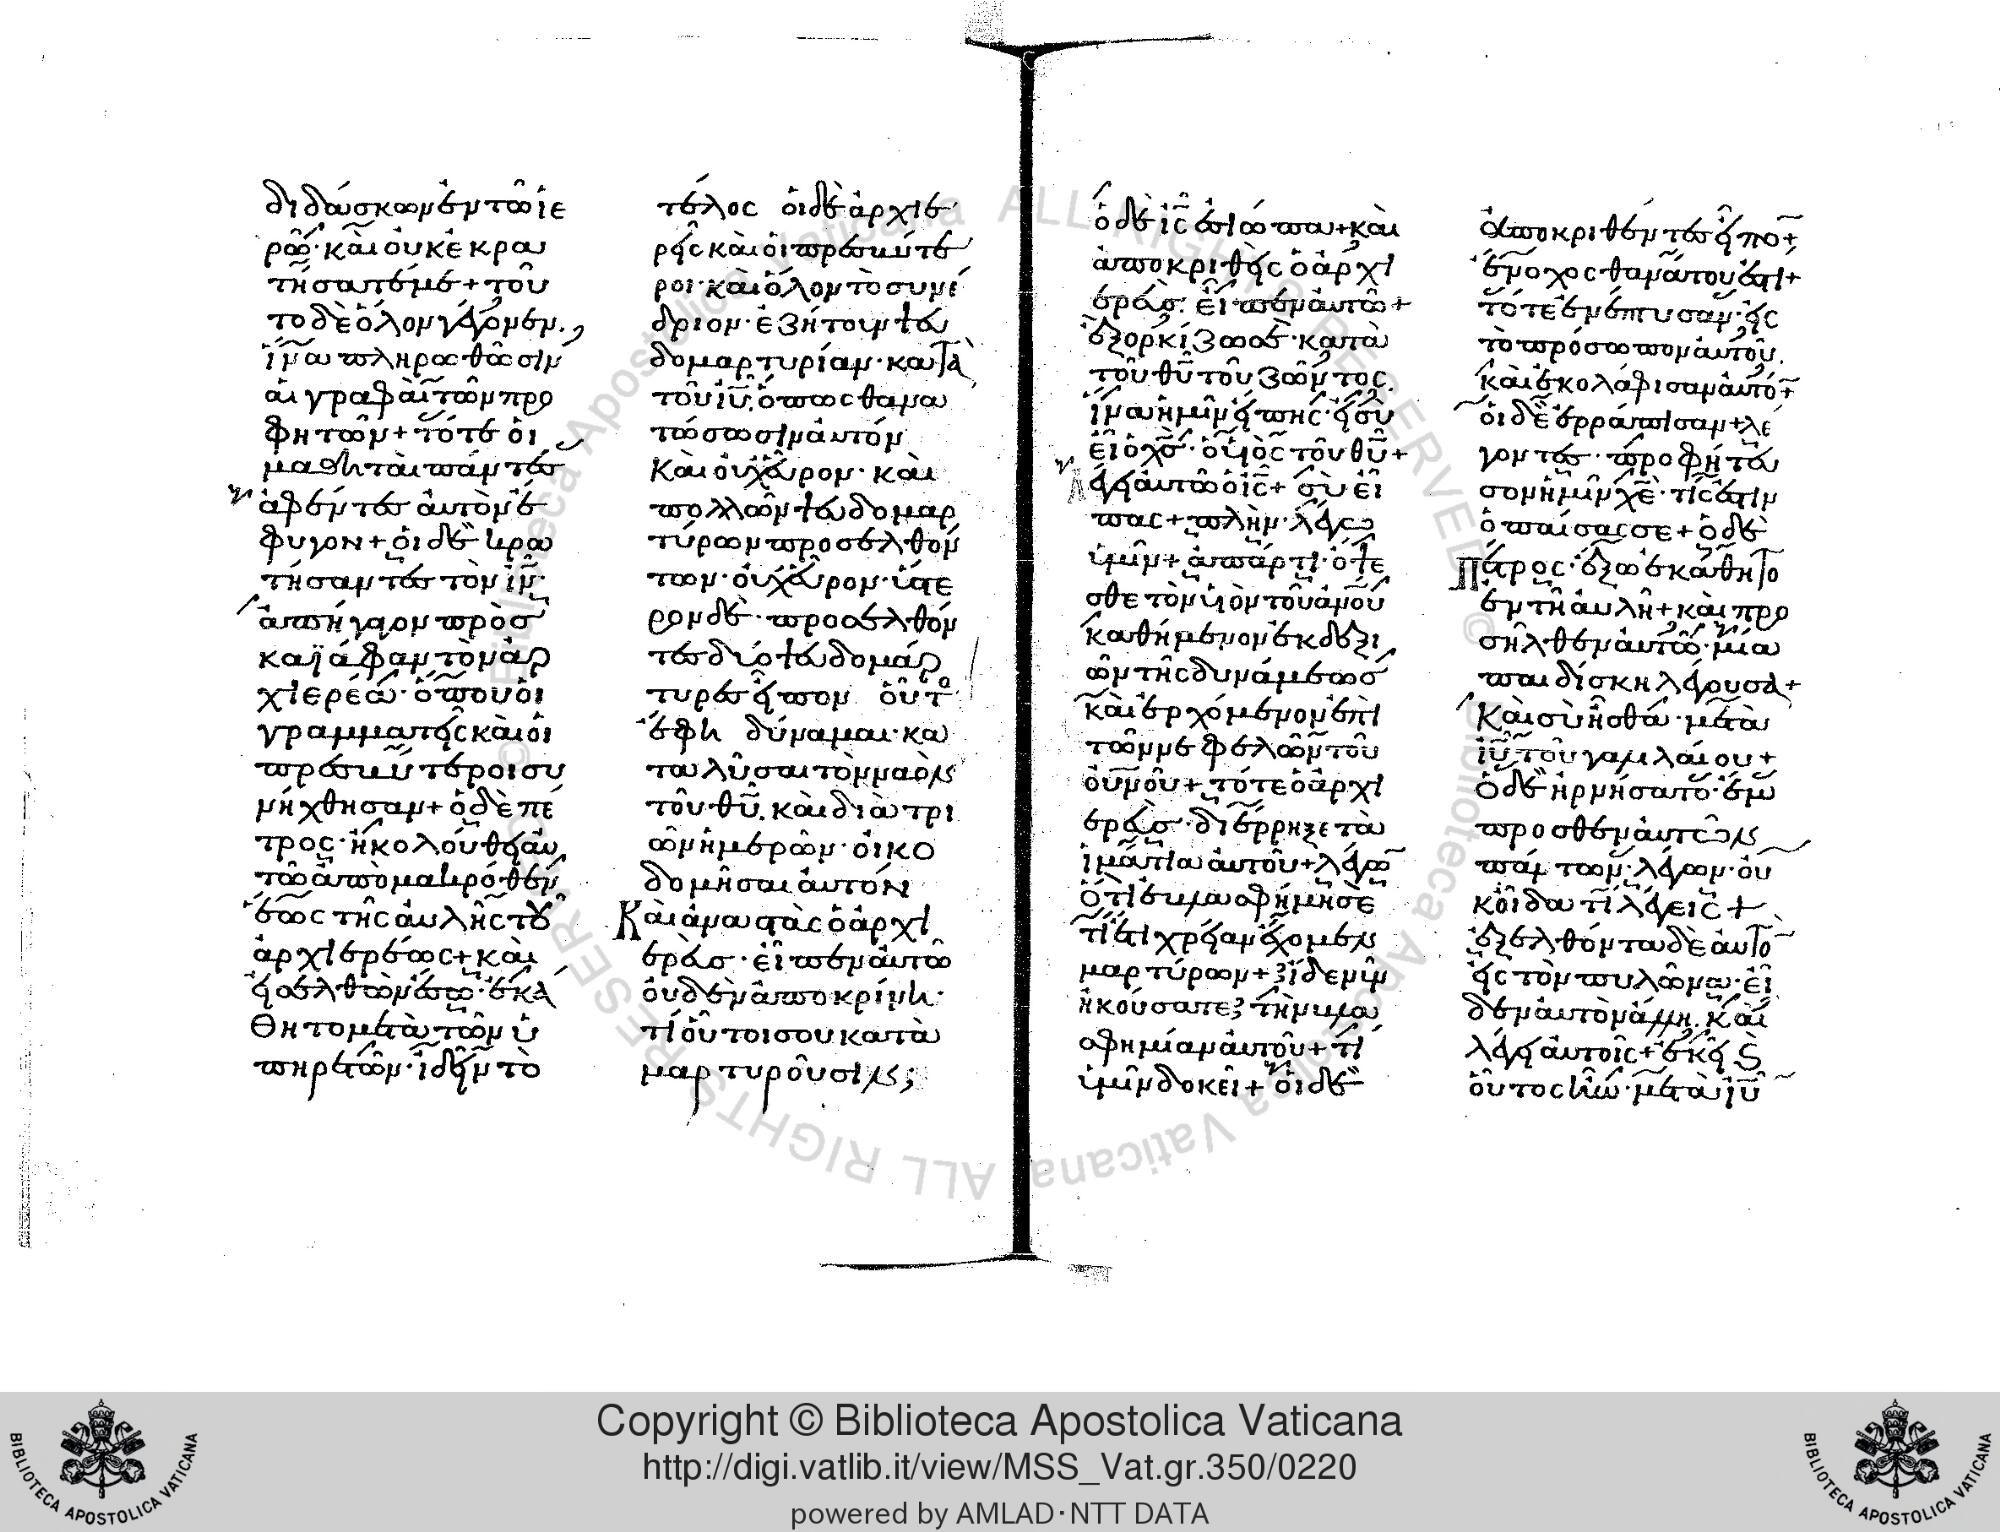 διδάσκων ἐν τῶ ἱε
ρῶ· καὶ οὐκ ἐκρα
τήσατέ με + τοῦ
το δὲ ὅλον γέγονεν.
ἵνα πληρωθῶσιν
αἱ γραφαὶ τῶν προ
φητῶν + τότε οἱ
μαθηταὶ πάντες
ἀφέντες αὐτὸν ἔ
φυγον + οἱ δὲ κρα
τήσαντες τὸν ἰν·
ἀπήγαγον πρὸς
καϊάφαν τὸν ἀρ
χιερέα· ὅπου οἱ
γραμματεῖς καὶ οἱ
πρεσβύτεροι συ
νήχθησαν + ὁ δὲ πέ
τρος· ἠκολούθει αυ
τῶ ἀπὸ μακρόθεν
ἕως τῆς αὐλῆς τοῦ
ἀρχιερέως + καὶ
εἰσελθὼν ἔσω· ἐκά
θητο μετὰ τῶν ὑ
πηρετῶν· ἰδεῖν τὸ
τέλος οἱ δὲ ἀρχιε
ρεῖς καὶ οἱ πρεσβύτε
ροι· καὶ ὅλον τὸ συνέ
δριον· ἐζήτουν ψευ
δομαρτυρίαν· κατὰ
τοῦ ιυ. ὅπως θανα
τώσωσιν αὐτόν
Καὶ οὐχ εὗρον· καὶ
πολλῶν ψευδομαρ
τύρων προσελθόν
των· οὐχ εὗρον· ὕστε
ρον δὲ· προσελθόν
τες δύο ψευδομάρ
τυρες εἶπον οὗτο
ἔφη δύναμαι· κα
ταλῦσαι τὸν ναὸν
τοῦ θυ. καὶ διὰ τρι
ῶν ἡμερῶν· οἰκο
δομῆσαι αὐτόν
Καὶ ἀναστὰς ὁ ἀρχι
ερεὺς· εἶπεν αὐτῶ
οὐδὲν ἀποκρίνη·
τί οὗτοι σου κατα
μαρτυροῦσιν;
ὁ δὲ ις ἐσιώπα + καὶ
ἀποκριθεὶς ὁ ἀρχι
ερεὺς· εἶπεν αὐτῶ +
ἐξορκίζω σε· κατὰ
τοῦ θυ τοῦ ζῶντος.
ἵνα ἡμῖν εἴπης· εἰ σὺ
εἶ ὁ χς· ὁ υἱὸς τοῦ θυ +
λέγει αὐτῶ ὁ ις + σὺ εἶ
πας + πλὴν· λέγω
ὑμῖν + ἀπάρτι· ὄψε
σθε τὸν υἱὸν τοῦ ανου
καθήμενον ἐκ δεξι
ῶν τῆς δυνάμεως
καὶ ἐρχόμενον ἐπὶ
τῶν νεφελῶν τοῦ
οὐνοῦ + τότε ὁ ἀρχι
ερεὺς· διέρρηξε τὰ
ἱμάτια αὐτοῦ + λέγων
ὅτι ἐβλασφήμησε
τί ἔτι χρείαν ἔχομεν
μαρτύρων + ἴδε νῦν
ἠκούσατε; τὴν βλα
σφημίαν αὐτοῦ + τί
ὑμῖν δοκεῖ + οἱ δὲ
ἀποκριθέντες εἶπον +
ἔνοχος θανάτου ἐστί +
τότε ἐνέπτυσαν· εἰς
τὸ πρόσωπον αὐτοῦ.
καὶ ἐκολάφισαν αὐτόν
οἱ δὲ ἐρράπισαν + λέ
γοντες· προφήτευ
σον ἡμῖν χε· τίς ἐστιν
ὁ παίσας σε + ὁ δὲ
Πέτρος· ἔξω ἐκάθητο
ἐν τῆ αὐλῆ + καὶ προ
σῆλθεν αὐτῶ· μία
παιδίσκη λέγουσα +
Καὶ σὺ ἦσθα· μετὰ
ιυ τοῦ γαλιλαίου +
Ὁ δὲ ἠρνήσατο· ἔμ
προσθεν αὐτῶν
πάντων· λέγων· οὐ
κ οἶδα τί λέγεις +
ἐξελθόντα δὲ αὐτὸν
εἰς τὸν πυλῶνα· εἶ
δεν αὐτὸν ἄλλη. καὶ
λέγει αὐτοῖς + ἐκεῖ
οὗτος ἦν· μετὰ ιυ
Copyright © Biblioteca Apostolica Vaticana
http://digi.vatlib.it/view/MSS_Vat.gr.350/0220
powered by AMLAD·NTT DATA
BIBLIOTECA APOSTOLICA VATICANA
BIBLIOTECA APOSTOLICA VATICANA
© Biblioteca Apostolica Vaticana ALL RIGHTS RESERVED © Biblioteca Apostolica Vaticana ALL RIGHTS RESERVED